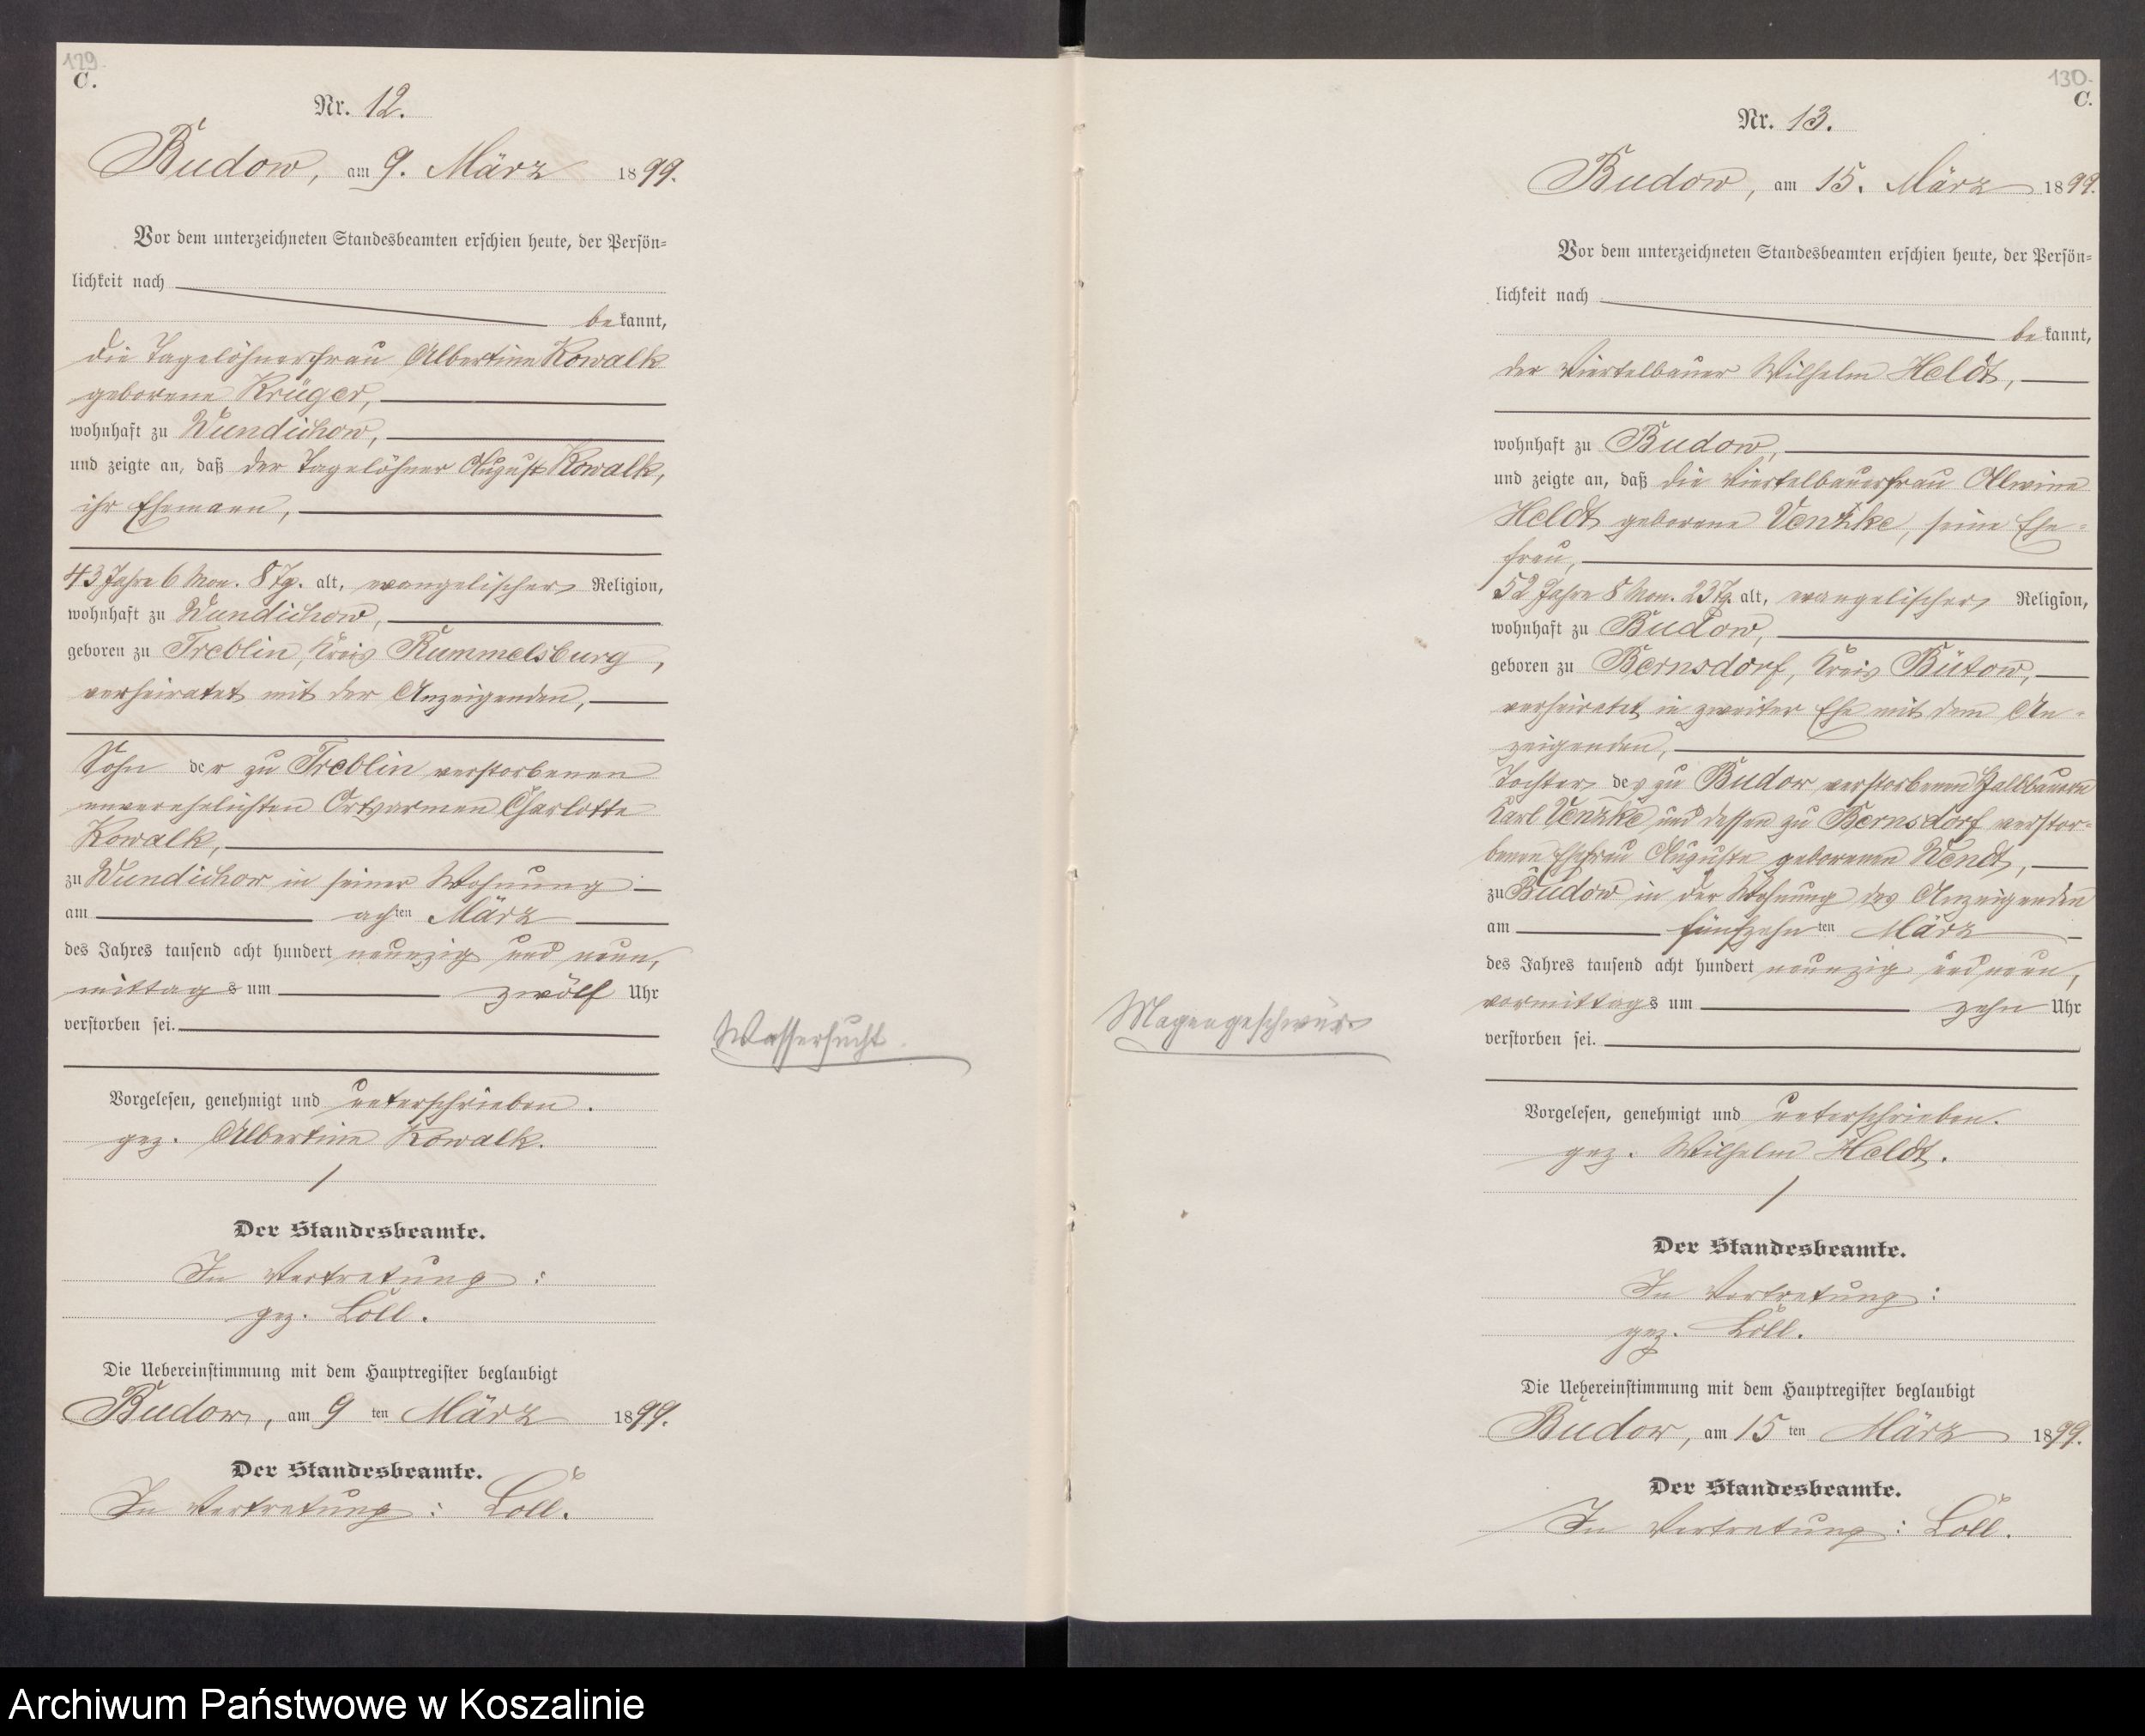 129.
C.
Nr. 12.
Budow, am 9. März 1899.
Vor dem unterzeichneten Standesbeamten erschien heute, der Persön-
lichkeit nach
bekannt,
die Tagelöhnerfrau Albertine Kowalk
geborene Krüger,
wohnhaft zu Wundichow,
und zeigte an, daß der Tagelöhner August Kowalk,
ihr Ehemann,
43 Jahre 6 Mon. 8 Tg. alt, evangelischer Religion,
wohnhaft zu Wundichow,
geboren zu Treblin, Kreis Rummelsburg,
verheiratet mit der Anzeigenden,
Sohn der zu Treblin verstorbenen
unverehelichten Ortsarmen Charlotte
Kowalk,
zu Wundichow in seiner Wohnung
am achten März
des Jahres tausend acht hundert neunzig und neun,
mittags um zwölf Uhr
verstorben sei.
Vorgelesen, genehmigt und unterschrieben.
gez. Albertine Kowalk.
Der Standesbeamte.
In Vertretung:
gez. Löll.
Die Uebereinstimmung mit dem Hauptregister beglaubigt
Budow, am 9ten März 1899.
Der Standesbeamte.
In Vertretung: Löll.
Wassersucht.
130.
C.
Nr. 13.
Budow, am 15. März 1899.
Vor dem unterzeichneten Standesbeamten erschien heute, der Persön-
lichkeit nach
bekannt,
der Viertelbauer Wilhelm Heldt,
wohnhaft zu Budow,
und zeigte an, daß die Viertelbauerfrau Alwine
Heldt geborene Venzke, seine Ehe-
frau,
52 Jahre 8 Mon. 23 Tg. alt, evangelischer Religion,
wohnhaft zu Budow,
geboren zu Bernsdorf, Kreis Bütow,
verheiratet in zweiter Ehe mit dem An-
zeigenden,
Tochter des zu Budow verstorbenen Halbbauern
Karl Venzke und dessen zu Bernsdorf verstor-
benen Ehefrau Auguste geborenen Wendt,
zu Budow in der Wohnung des Anzeigenden
am fünfzehnten März
des Jahres tausend acht hundert neunzig und neun,
vormittags um zehn Uhr
verstorben sei.
Vorgelesen, genehmigt und unterschrieben.
gez. Wilhelm Heldt.
Der Standesbeamte.
In Vertretung:
gez. Löll.
Die Uebereinstimmung mit dem Hauptregister beglaubigt
Budow, am 15ten März 1899.
Der Standesbeamte.
In Vertretung: Löll.
Magengeschwür
Archiwum Państwowe w Koszalinie